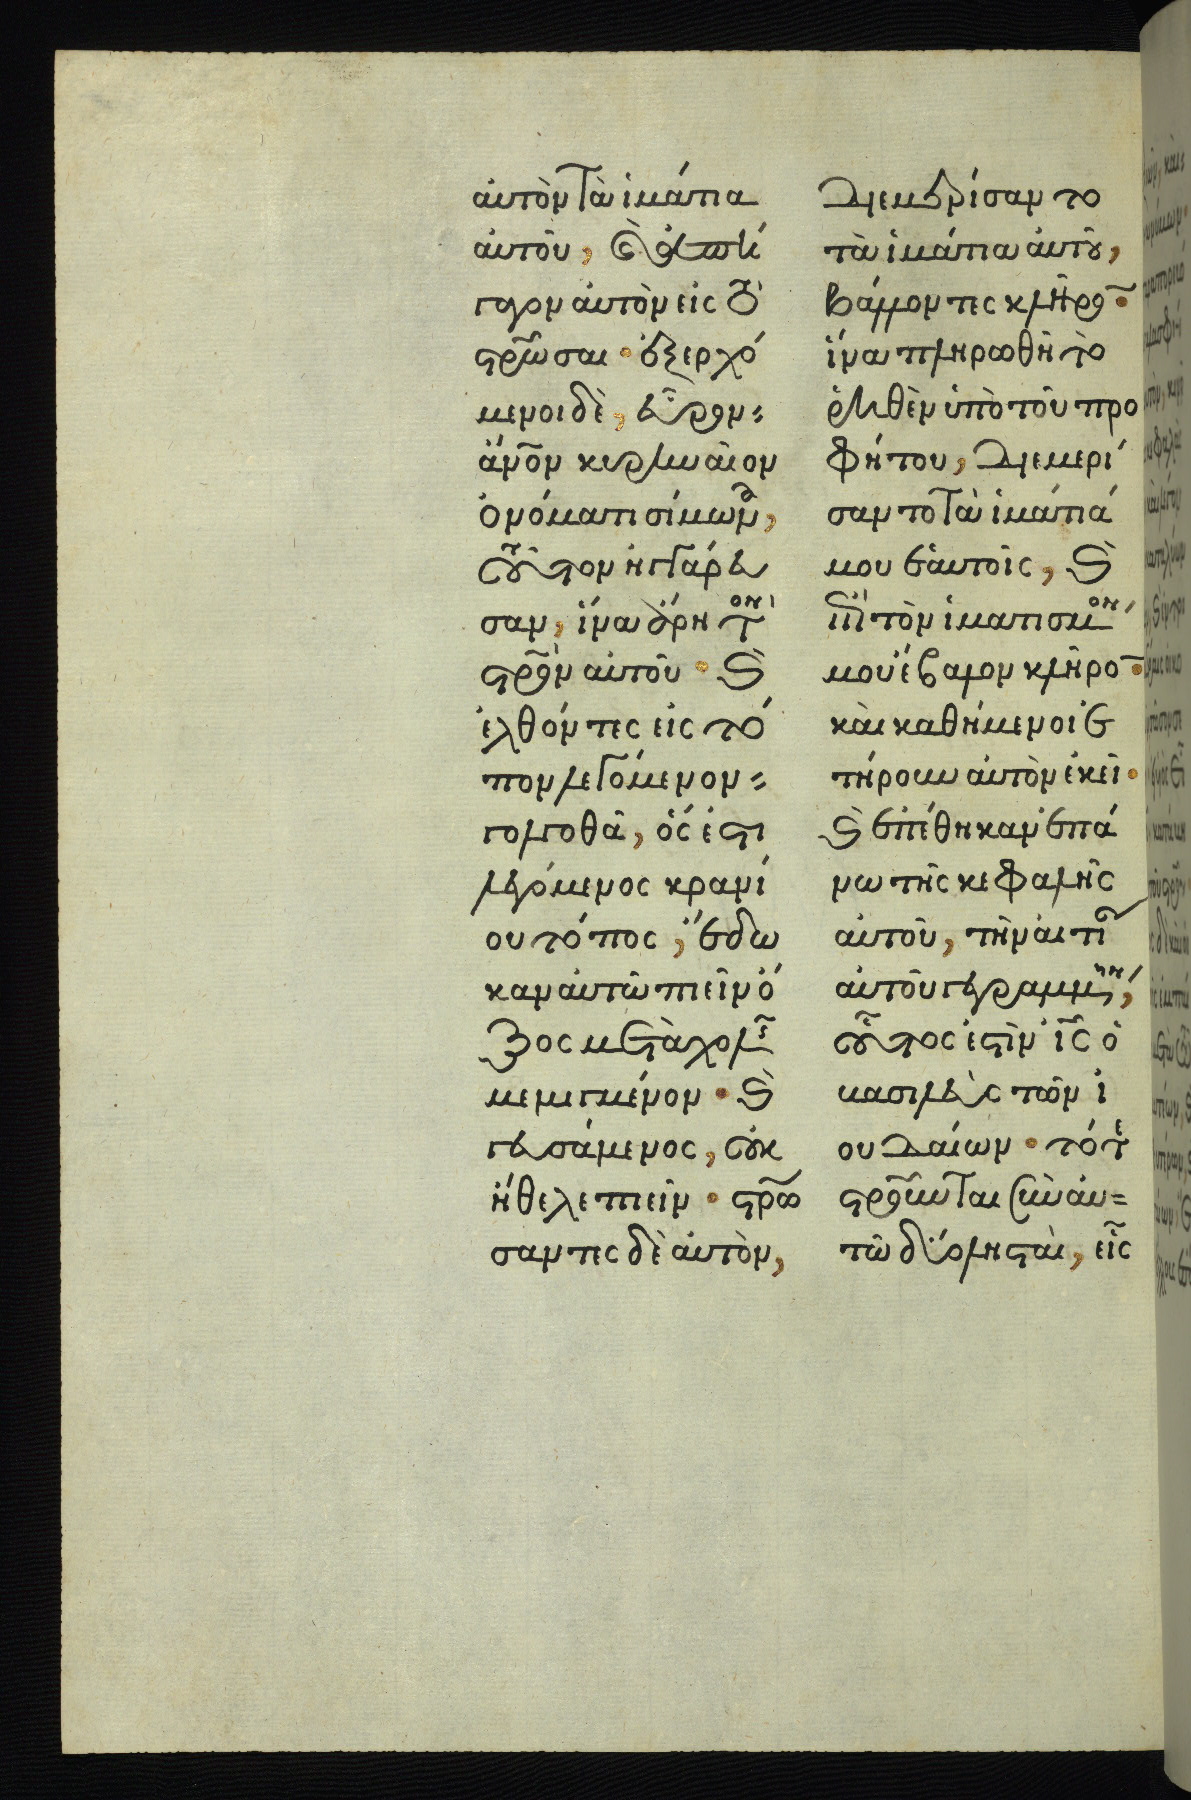 αυτὸν τὰ ἱμάτια
αυτοῦ, καὶ ἀπή
γαγον αυτὸν εἰς τὸ
σταυρῶσαι · ἐξερχό
μενοι δὲ, εὗρον
ἄνον κυρηναῖον
ὀνόματι σίμωνα,
τοῦτον ἠγγάρευ
σαν, ἵνα ἄρη τὸν
στρὸν αυτοῦ · καὶ
ἐλθόντες εἰς τό
πον λεγόμενον
γολγοθᾶ, ὅς ἐστι
λεγόμενος κρανί
ου τόπος, ἔδω
καν αυτῶ πιεῖν ὄ
ξος μετὰ χολῆς
μεμιγμένον · καὶ
γευσάμενος, οὐκ
ἤθελε πιεῖν · στρώ
σαντες δὲ αυτὸν,
διεμερίσαντο
τὰ ἱμάτια αυτοῦ,
βάλλοντες κλῆρον ·
ἵνα πληρωθῆ τὸ
ρηθὲν ὑπὸ τοῦ προ
φήτου, διεμερί
σαντο τὰ ἱμάτιά
μου ἑαυτοῖς, καὶ
ἐπὶ τὸν ἱματισμὸν
μου ἔβαλον κλῆρον ·
καὶ καθήμενοι ἐ
τήρουν αυτὸν ἐκεῖ ·
καὶ ἐπέθηκαν ἐπά
νω τῆς κεφαλῆς
αυτοῦ, τὴν αἰτίαν
αυτοῦ γεγραμμένην,
οὗτος ἐστὶν ις ὁ
βασιλεὺς τῶν ἰ
ουδαίων · τότε
στροῦνται σὺν αυ
τῶ δύο λησταὶ, εἷς